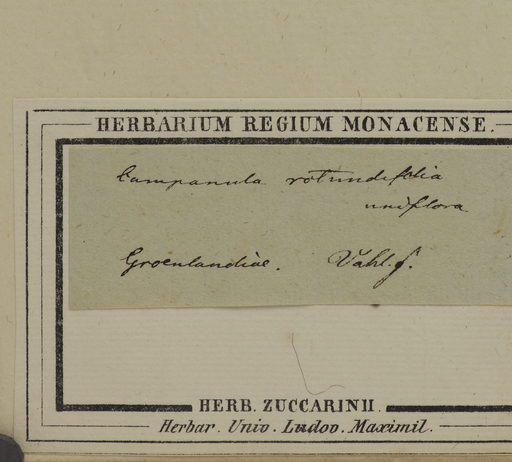 HERBARIUM REGIUM MONACENSE.
Campanula rotundifolia
uniflora
Groenlandiae. Vahl. f.
HERB. ZUCCARINII.
Herbar. Univ. Ludov. Maximil.